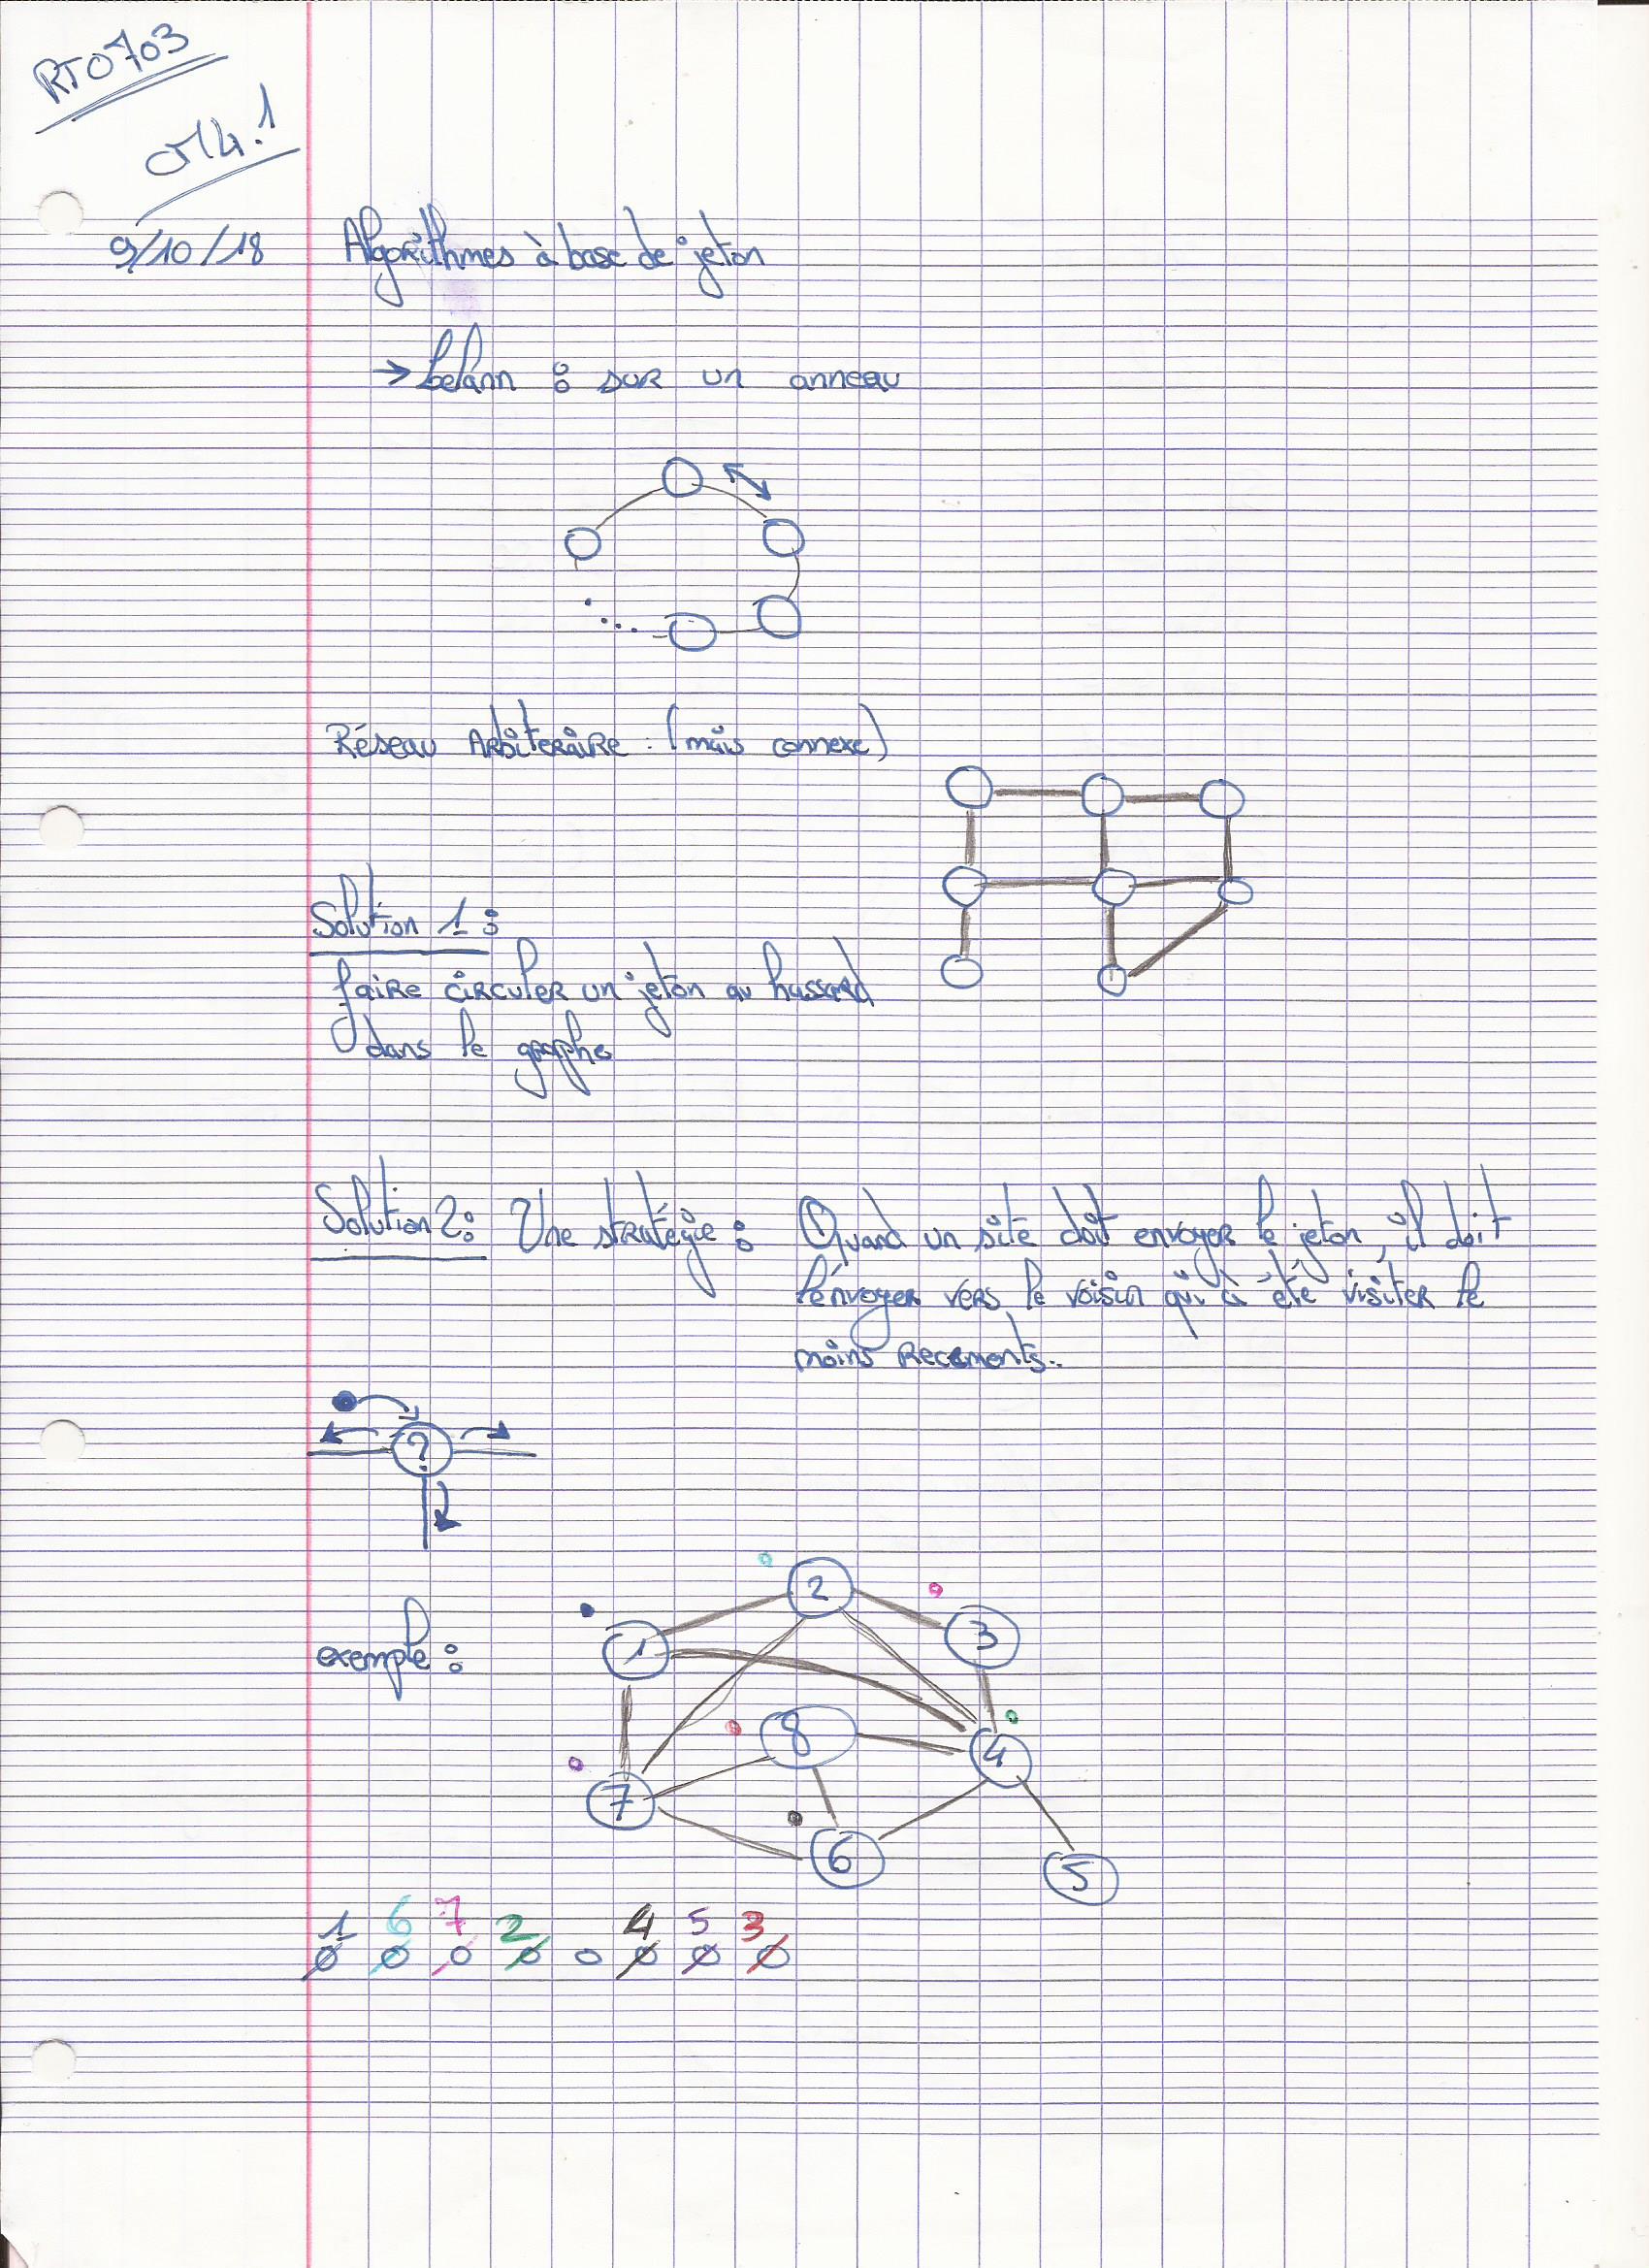 RT0703
CM4.1
9/10/18 Algorithmes à base de jeton
→ Lelann : sur un anneau
Réseau Arbiteraire : (mais connexe)
Solution 1 :
faire circuler un jeton au hassard
dans le graphe
Solution 2 : Une stratégie : Quand un site doit envoyer le jeton, il doit
l'envoyer vers le voisin qui à été visiter le
moins recements..
?
exemple :
2
1
3
8
4
7
6
5
1 6 7 2 4 5 3
0 0 0 0 0 0 0 0